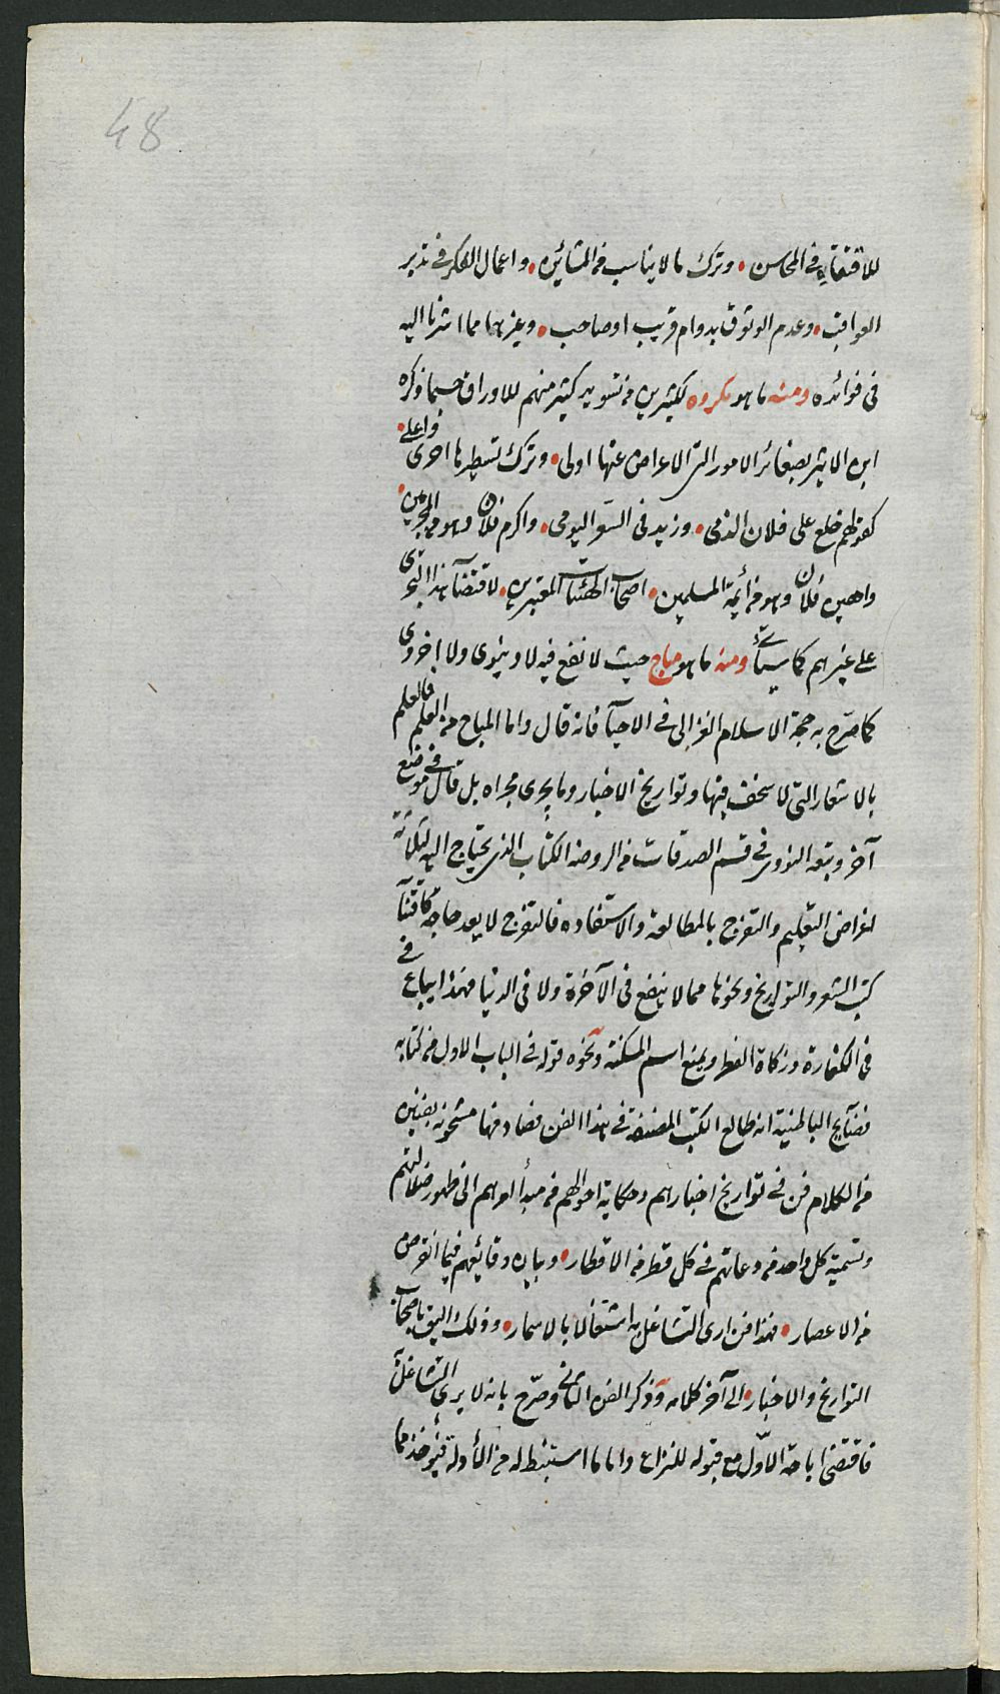 48
للاقتفاء في المحاسن • وترك ما لا يناسب من المشائين • واعمال الفكر في تدبر
العواقب • وعدم الوثوق بدوام قريب او صاحب • وغيرهما مما اشرنا اليه
في فوائده ومنه ما هو مكروه لكثيرين من تسويد كثير منهم للاوراق حسبما ذكره
ابن الاثير بصغائر الامور التي الاعراض عنها اولى • وترك تسطيرها احرى واعلى •
كقولهم خلع على فلان الذمي • وزيد في السعر اليومي • واكرم فلان وهو من المجرمين •
واهين فلان وهو من أئمة المسلمين • اصحاب الهئيات المعتبرين • لاقتضآ هذا التجرى
على غيرهم كما سيأتي ومنه ما هو مباح حيث لا نفع فيه لا دنيوى ولا اخروى
كما صرّح به حجة الاسلام الغزالى في الاحيآ فانه قال واما المباح من العلم فالعلم
بالاشعار التي لا سخف فيها وتواريخ الاخبار وما يجرى مجراه بل قال في موضع
آخر وتبعه النووى في قسم الصدقات من الروضه الكتاب الذى يحتاج اليه لثلاثة
اغراض التعليم والتفرج بالمطالعة والاستفاده فالتفرج لا يعد حاجة كاقتنآ
كتب الشعر والتواريخ ونحوها مما لا ينفع في الآخرة ولا في الدنيا فهذا يباع في
في الكفارة وزكاة الفطر ويمنع اسم المسكنة ونحوه قوله في الباب الاول من كتابه
فضآيح الباطنية انه طالع الكتب المصنفة في هذا الفن فصادفها مشحونه بفنين
من الكلام فن في تواريخ اخبارهم وحكاية احوالهم من مبدأ امرهم الى ظهور ضلالتهم
وتسمية كل واحد من دعاتهم في كل قطر من الاقطار • وبيان وقائيعهم فيما انقرض
من الاعصار • فهذا فن ارى التشاغل به اشتغالا بالاسمار • وذلك اليق باصحاب
التواريخ والاخبار • الى آخر كلامه وذكر الفن الثاني وصرّح بانه لا يرى التشاغل به
فاقتضى اباحة الاوّل مع قبوله للنزاع واما ما استنبط له من الأدلة فيؤخذ مما